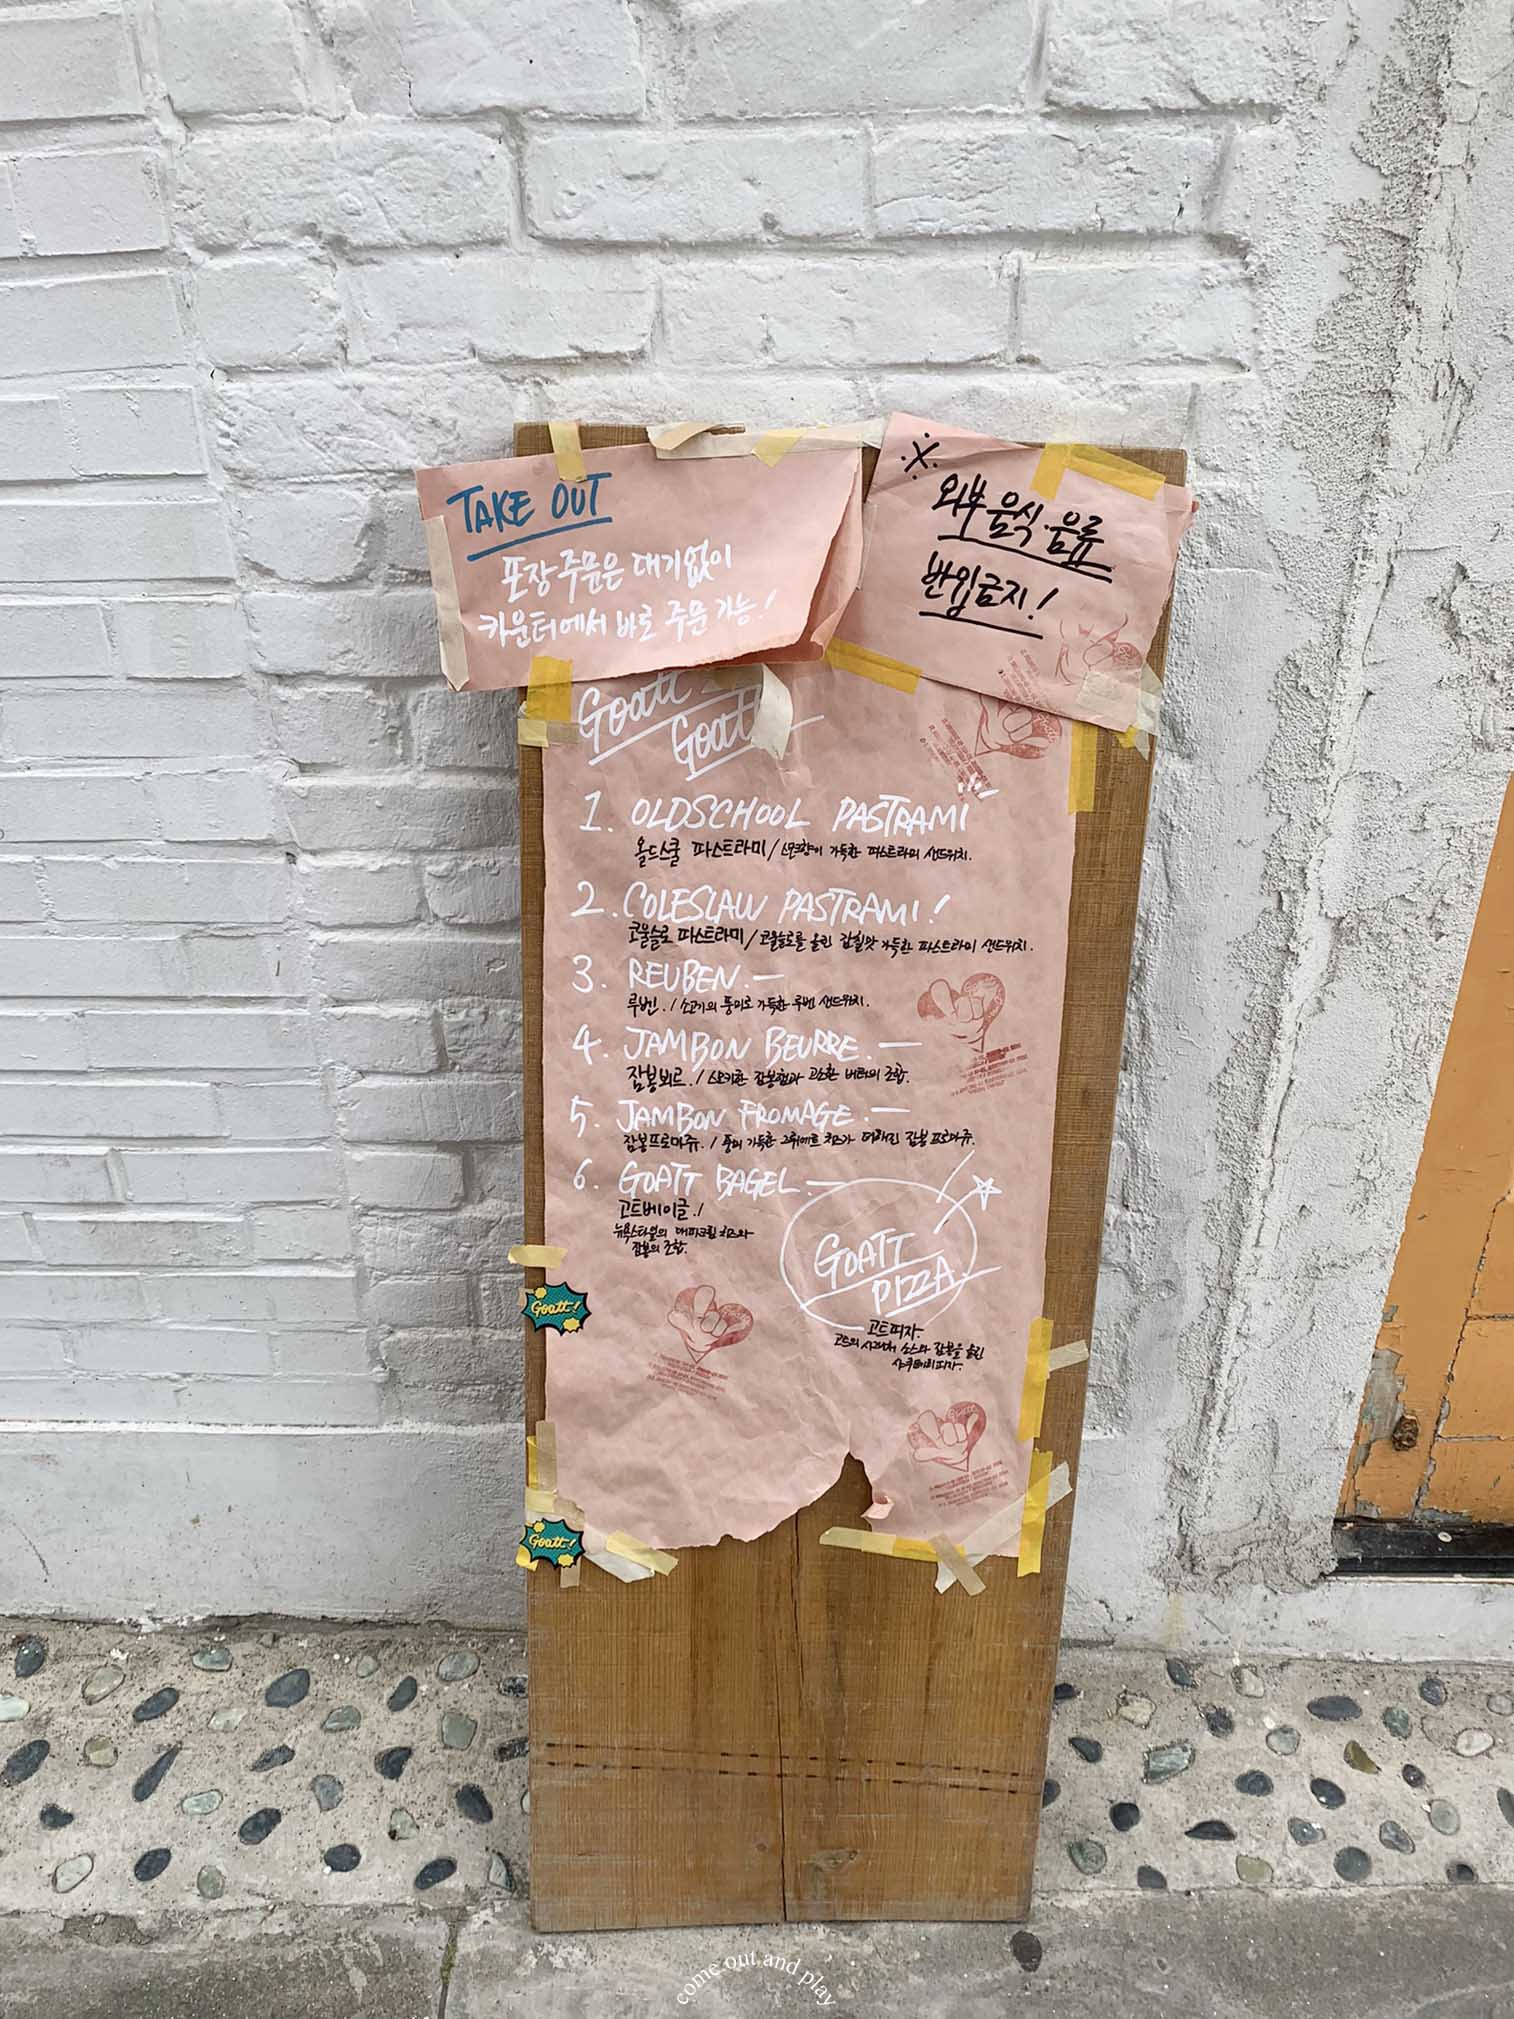 TAKE OUT
포장 주문은 대기없이
카운터에서 바로 주문 가능!
※
외부 음식·음류
반입금지!
Goatt
Goatt
1. OLDSCHOOL PASTRAMI
올드스쿨 파스트라미 / 스모크향이 가득한 파스트라미 샌드위치.
2. COLESLAW PASTRAMI!
코울슬로 파스트라미 / 코울슬로를 올린 감칠맛 가득한 파스트라미 샌드위치.
3. REUBEN.
루벤. / 소고기의 풍미로 가득한 루벤 샌드위치.
4. JAMBON BEURRE.
잠봉뵈르. / 스모키한 잠봉햄과 고소한 버터의 조합.
5. JAMBON FROMAGE.
잠봉프로마쥬. / 풍미 가득한 그뤼에르 치즈가 더해진 잠봉 프로마쥬.
6. GOATT BAGEL.
고트베이글. /
뉴욕스타일의 크림치즈와
잠봉의 조합.
GOATT
PIZZA
고트피자.
고트의 소스와 잠봉을 올린
Goatt!
Goatt!
come out and play